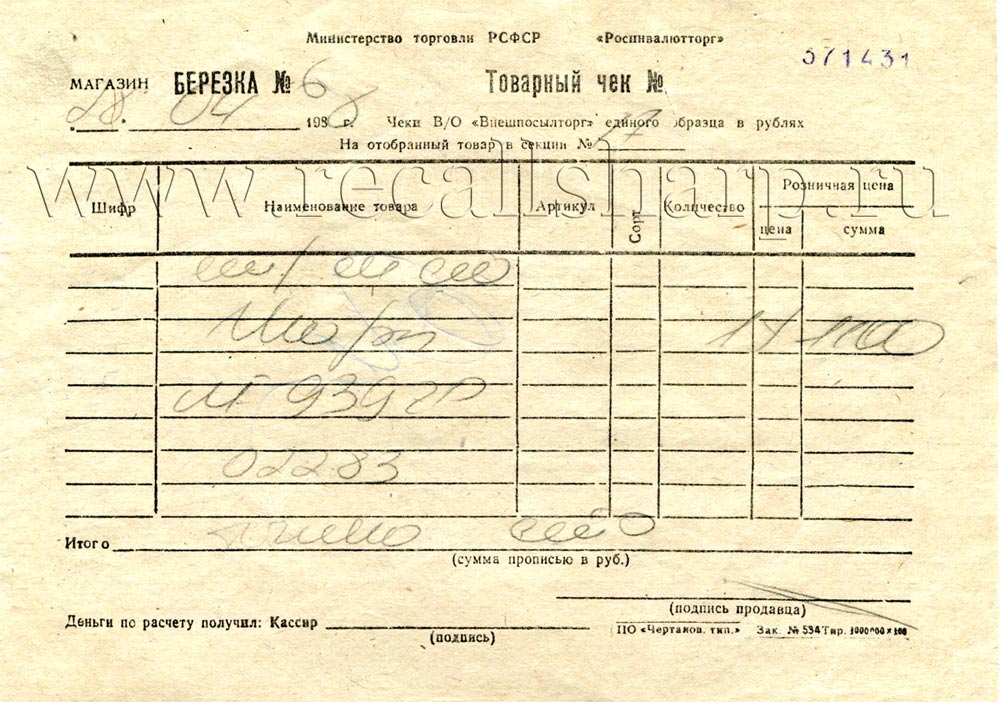 Министерство торговли РСФСР «Росинвалютторг»
571431
МАГАЗИН БЕРЕЗКА № 6 Товарный чек №
28. 04 1988 г. Чеки В/О «Внешпосылторг» единого образца в рублях
На отобранный товар в секции № 17
www.recallsharp.ru
Шифр Наименование товара Артикул Сорт Количество Розничная цена
цена сумма
М 939
02283
Итого
(сумма прописью в руб.)
(подпись продавца)
Деньги по расчету получил: Кассир
(подпись)
ПО «Чертанов. тип.» Зак. № 534 Тир. 1000000×100